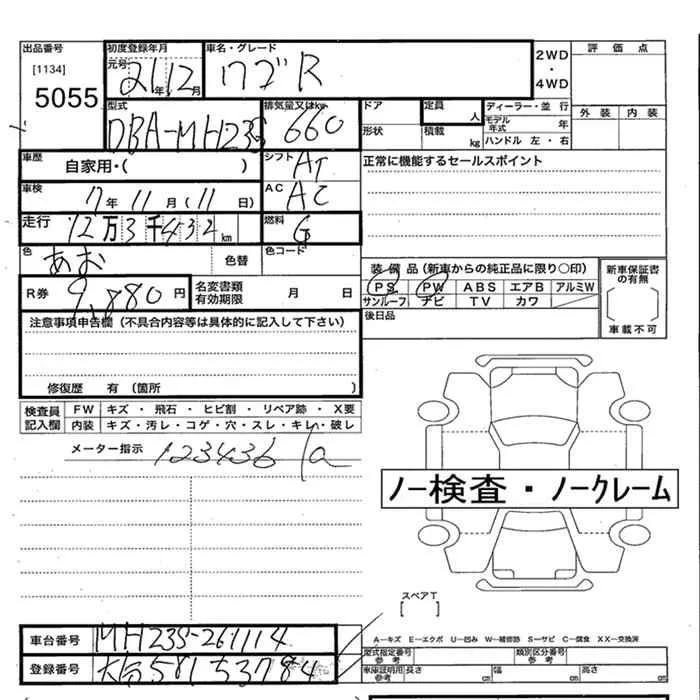 出品番号 [1134] 5055
初度登録年月 元号 21年12月
車名・グレード ワゴR
2WD・4WD
評価点
外装 内装
型式 DBA-MH23S
排気量又はkw 660
ドア
形状
定員 人
積載 kg
ディーラー・並行
モデル年式 年
ハンドル 左・右
車歴 自家用・( )
シフト AT
正常に機能するセールスポイント
車検 7年11月(11日)
AC AC
走行 12万3千432km
燃料 G
色 あお 色替
色コード
装備品(新車からの純正品に限り○印)
PS PW ABS エアB アルミW
サンルーフ ナビ TV カワ
新車保証書の有無
車載不可
R券 9,880円
名変書類有効期限 月 日
後日品
注意事項申告欄(不具合内容等は具体的に記入して下さい)
修復歴 有(箇所 )
検査員記入欄
FW キズ・飛石・ヒビ割・リペア跡・X要
内装 キズ・汚レ・コゲ・穴・スレ・キレ・破レ
メーター指示 123436
ノー検査・ノークレーム
スペアT
[ ]
A-キズ E-エクボ U-凹み W-補修跡 S-サビ C-腐食 XX-交換済
車台番号 MH23S-261114
型式指定番号 参考
類別区分番号 参考
登録番号 大分581 53784
車庫証明用 参考 長さ cm 幅 cm 高さ cm